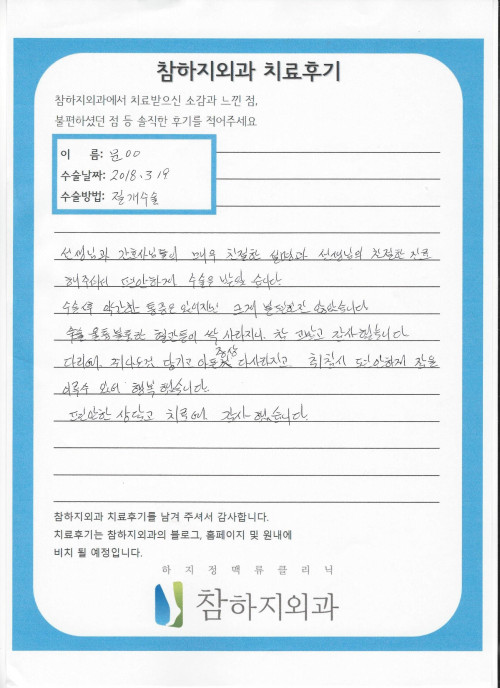 참하지외과 치료후기
참하지외과에서 치료받으신 소감과 느낀 점,
불편하셨던 점 등 솔직한 후기를 적어주세요
이 름: 문00
수술날짜: 2018.3.19
수술방법: 절개수술
선생님과 간호사님들의 매우 친절한 선생님의 친절한 진료
해주셔서 편안하게 수술을 받았습니다
수술후 약간한 통증은 있어지만 크게 불편한건 없었습니다
울퉁불퉁한 혈관들이 싹 사라지니. 참 고맙고 감사합니다
다리에. 쥐나는것 당기고 아픈 증상 다사라지고. 취침시 편안하게 잠을
이루수 있어 행복했습니다.
편안한 상담과 치료에 감사했습니다.
참하지외과 치료후기를 남겨 주셔서 감사합니다.
치료후기는 참하지외과의 블로그, 홈페이지 및 원내에
비치 될 예정입니다.
하지정맥류클리닉
참하지외과